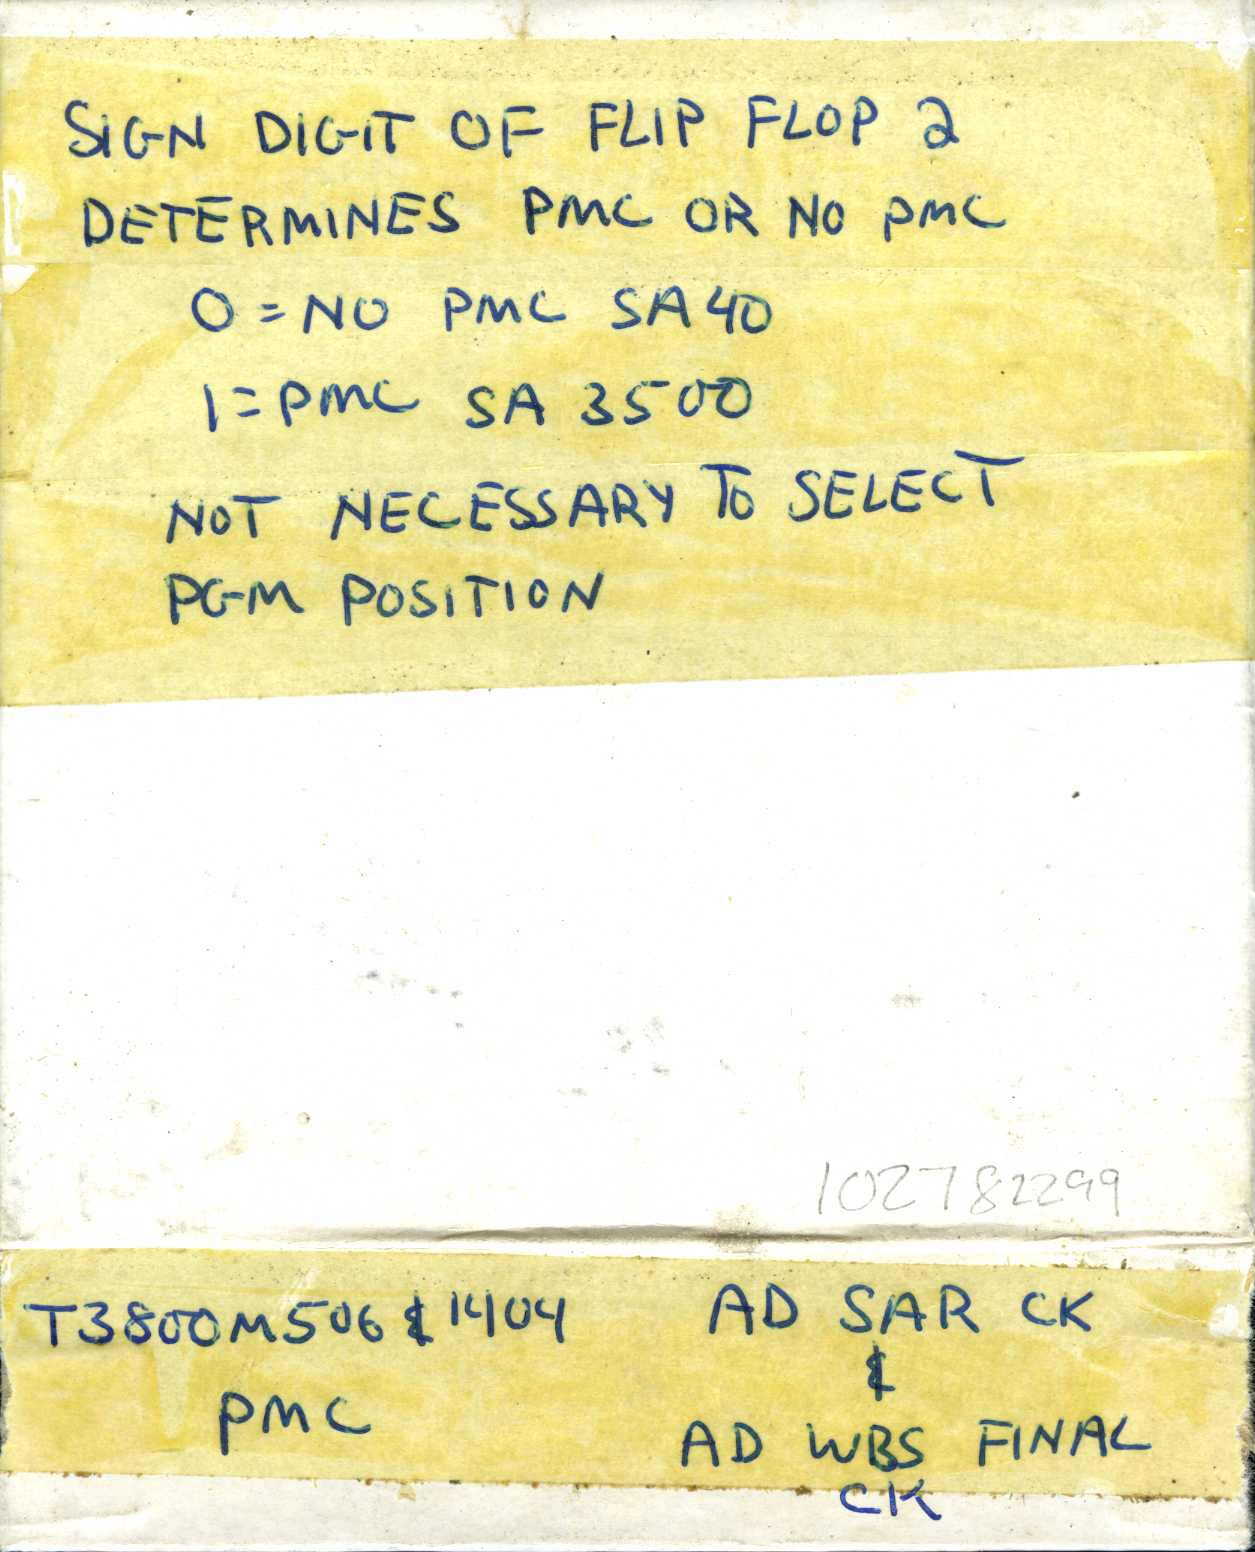 SIGN DIGIT OF FLIP FLOP 2
DETERMINES PMC OR NO PMC
0 = NO PMC SA 40
1 = PMC SA 3500
NOT NECESSARY TO SELECT
PGM POSITION
102782299
T3800M506 & 1404
PMC
AD SAR CK
&
AD WBS FINAL
CK